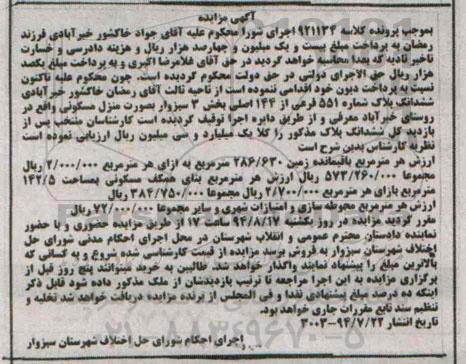 آگهی مزایده
بموجب پرونده کلاسه ۹۲۱۱۳۴ اجرای شورا محکوم علیه آقای جواد خاکشور خیرآبادی فرزند
رمضان به پرداخت مبلغ بیست و یک میلیون و چهارصد هزار ریال و هزینه دادرسی و خسارت
تاخیر تادیه که بعدا محاسبه خواهد گردید در حق آقای غلامرضا اکبری و به پرداخت مبلغ یکصد
هزار ریال حق الاجرای دولتی در حق دولت محکوم گردیده است چون محکوم علیه تاکنون
نسبت به پرداخت دیون خود اقدامی ننموده است از ناحیه ثالث آقای رمضان خاکشور خیرآبادی
ششدانگ پلاک شماره ۵۵۱ فرعی از ۱۴۴ اصلی بخش ۳ سبزوار بصورت منزل مسکونی واقع در
روستای خیرآباد معرفی و از طریق دایره اجرا توقیف گردیده است کارشناسان منتخب پس از
بازدید کل ششدانگ پلاک مذکور را کلا یک میلیارد و سی میلیون ریال ارزیابی نموده است
نظریه کارشناس بدین شرح است
ارزش هر مترمربع باقیمانده زمین ۲۸۶/۶۳۰ مترمربع به ازای هر مترمربع ۲/۰۰۰/۰۰۰ ریال
مجموعا ۵۷۳/۲۶۰/۰۰۰ ریال ارزش هر مترمربع بنای همکف مسکونی بمساحت ۱۴۲/۵
مترمربع بازای هر مترمربع ۲/۷۰۰/۰۰۰ ریال مجموعا ۳۸۴/۷۵۰/۰۰۰ ریال
ارزش هر مترمربع محوطه سازی و امتیازات شهری و سایر مجموعا ۷۲/۰۰۰/۰۰۰ ریال
مقرر گردید مزایده در روز یکشنبه ۹۴/۸/۱۷ ساعت ۱۲ از طریق مزایده حضوری و با حضور
نماینده دادستان محترم عمومی و انقلاب شهرستان در محل اجرای احکام مدنی شورای حل
اختلاف شهرستان سبزوار به فروش برسد مزایده از قیمت کارشناسی شده شروع و به کسانی که
بالاترین مبلغ را پیشنهاد نمایند واگذار خواهد شد. طالبین به خرید میتوانند پنج روز قبل از
برگزاری مزایده به این اجرا مراجعه تا ترتیب بازدیدشان از ملک مذکور داده شود قابل ذکر
اینکه ده درصد مبلغ پیشنهادی نقدا و فی المجلس از برنده مزایده دریافت خواهد شد تخلیه و
تنظیم سند تابع مقررات جاری خواهد بود.
تاریخ انتشار ۹۴/۷/۲۲-۳۰۰۳
اجرای احکام شورای حل اختلاف شهرستان سبزوار
۰۲۱-۸۸۳۴۹۶۷۰-۵